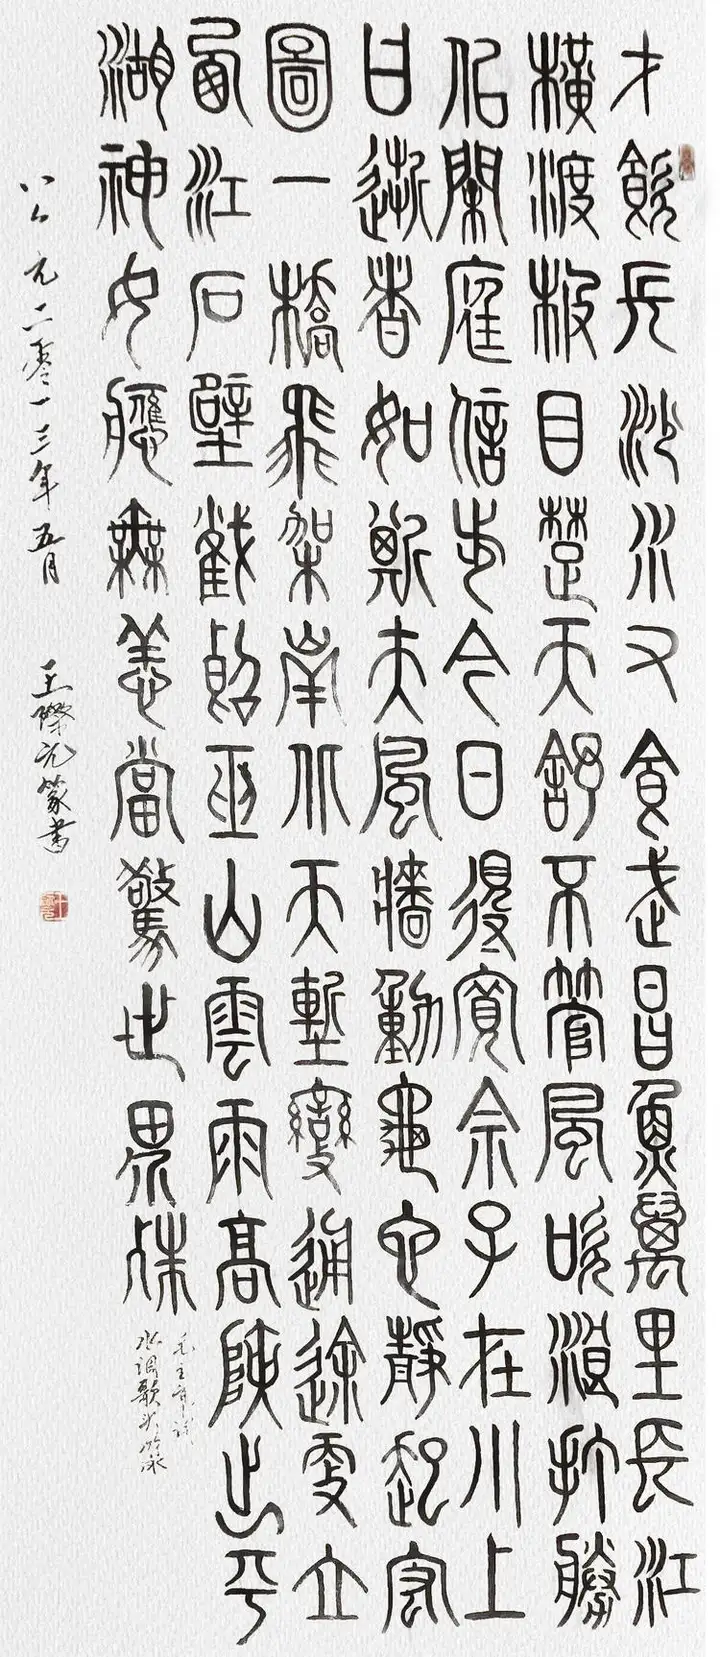 才飲長沙水又食武昌魚萬里長江
橫渡极目楚天舒不管風吹浪打勝
似閑庭信步今日得寬余子在川上
曰逝者如斯夫風牆動龜它靜起宏
圖一橋飛架南北天塹變通途更立
西江石壁截斷巫山雲雨高峽出平
湖神女應無恙當驚世界殊
毛主席詞
水調歌头游泳
公元二零一三年五月 王際元篆書